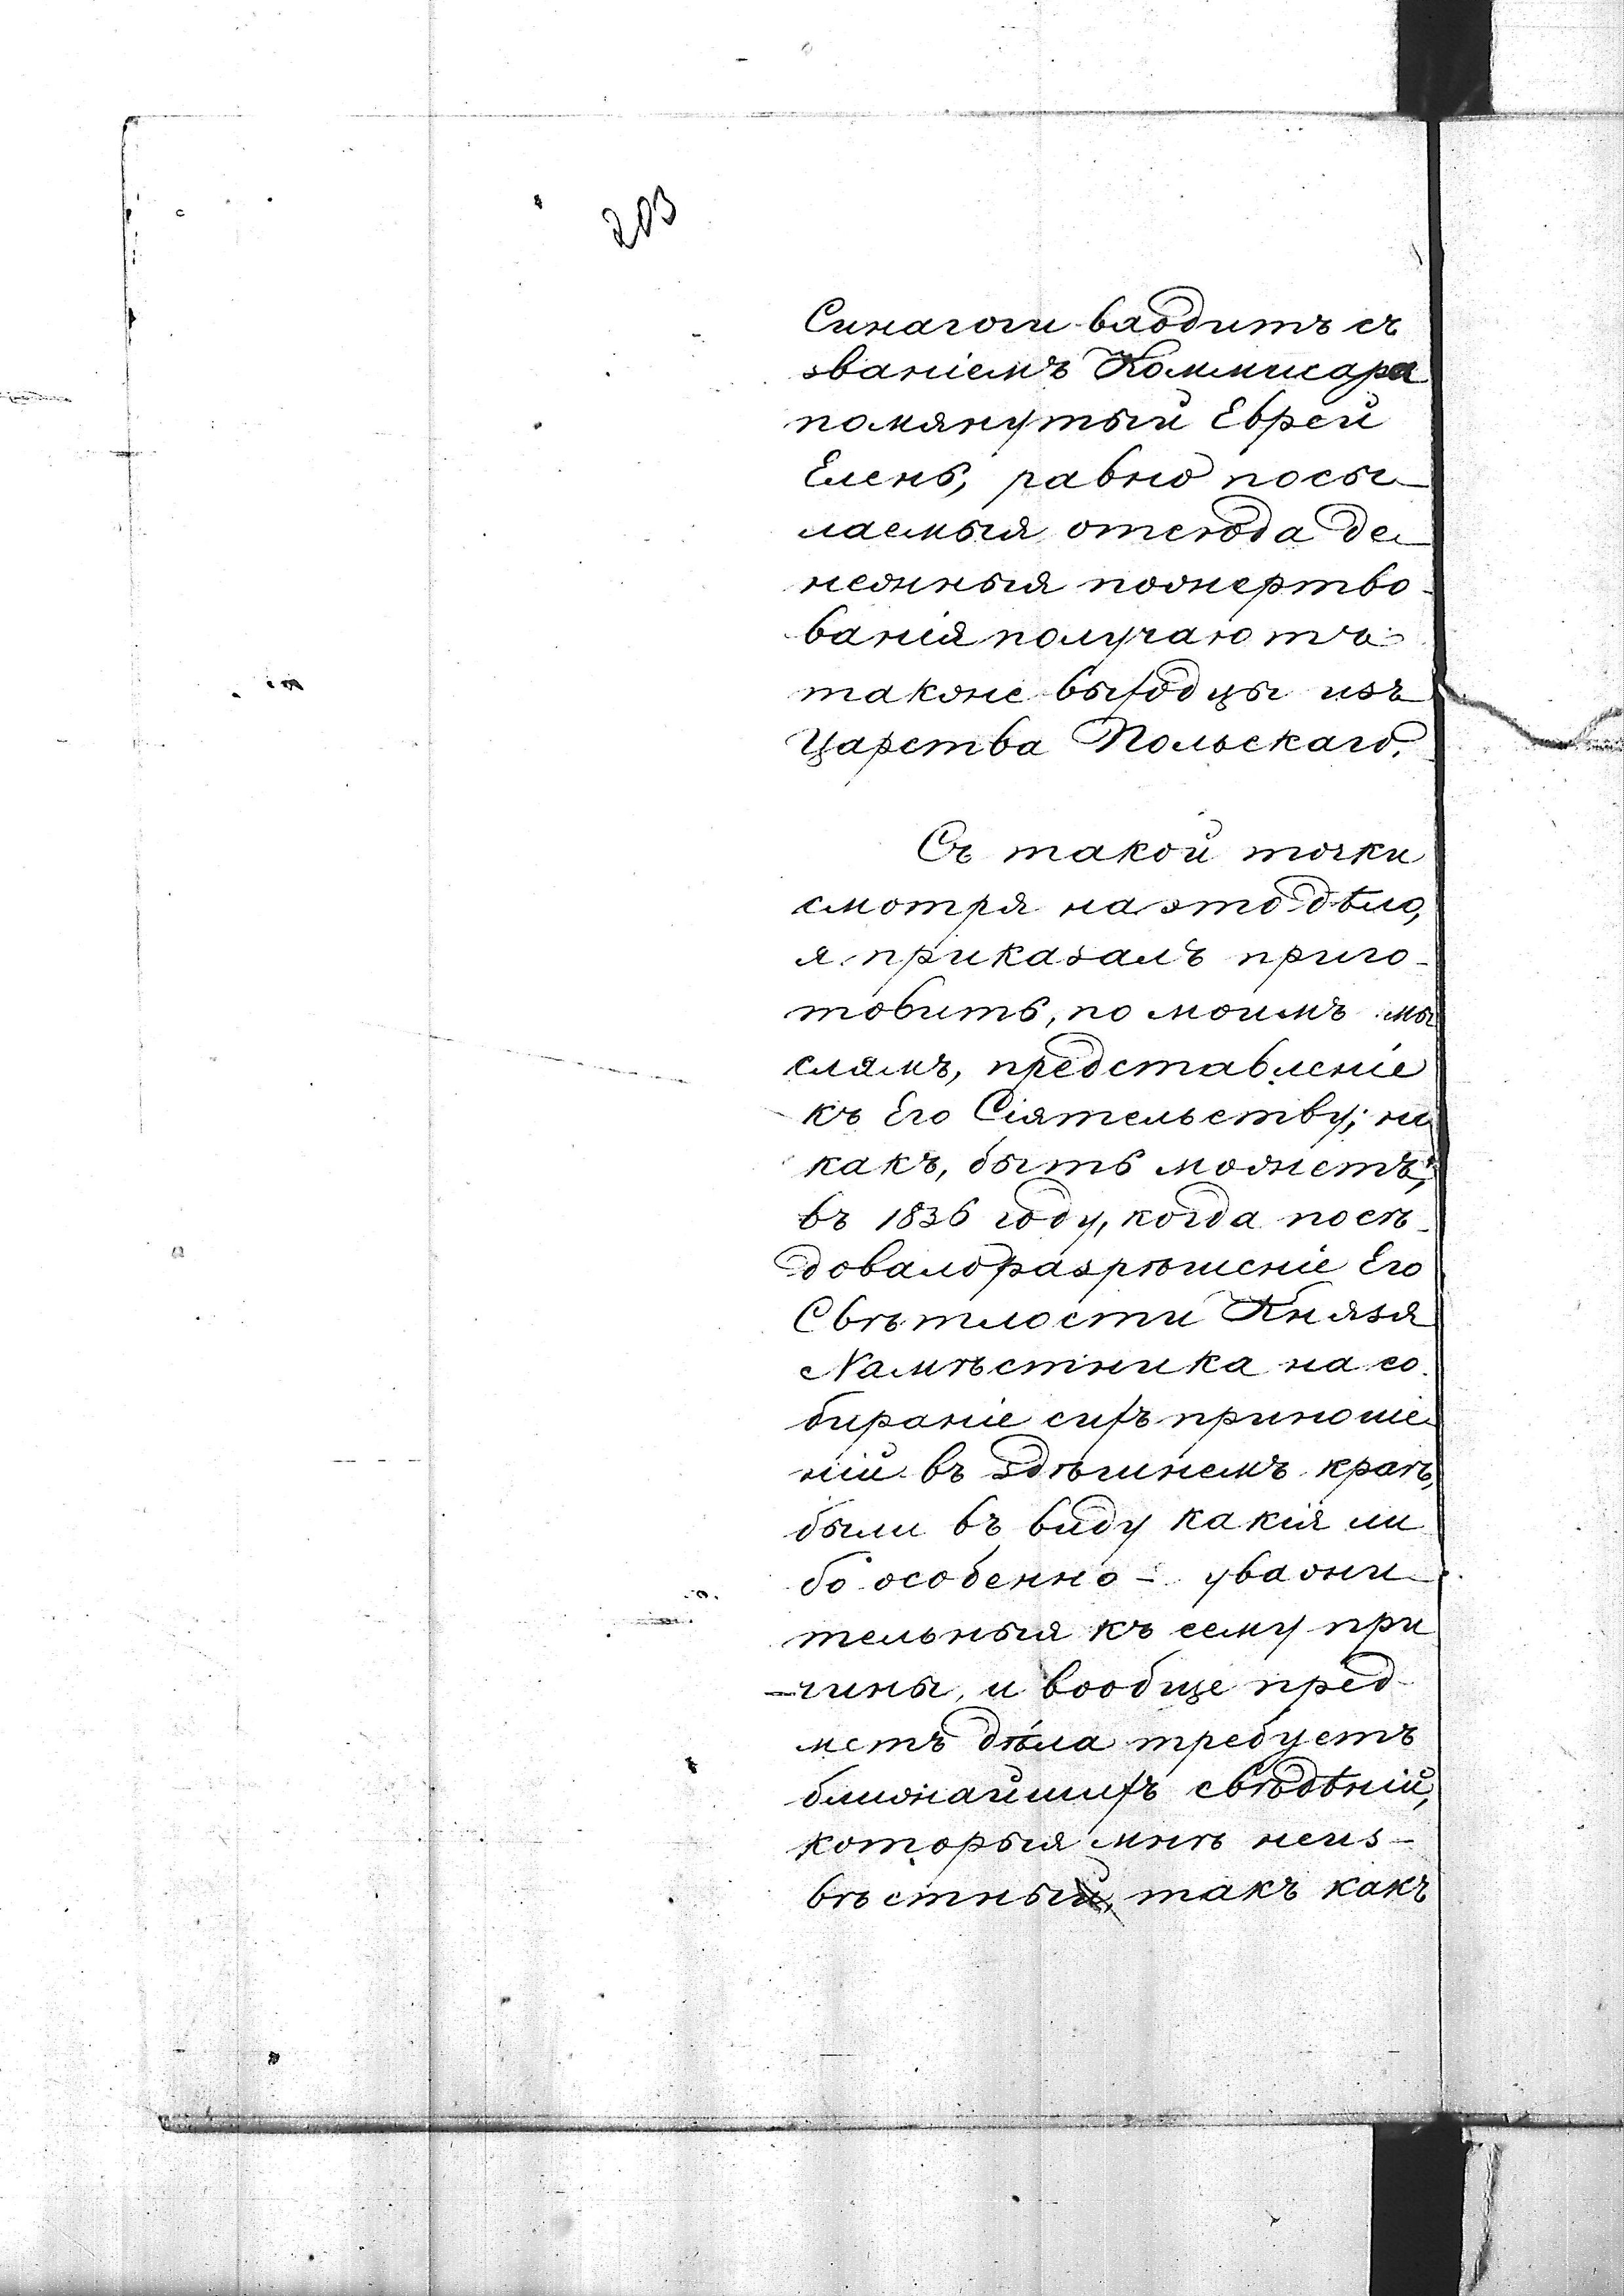 203
Синагоги входитъ съ
званіемъ Коммисара
помянутый Еврей
Еленъ, равно посы-
лаемыя отсюда де-
нежныя пожертво-
ванія получаютъ
также выходцы изъ
Царства Польскаго.
Съ такой точки
смотря на это дѣло,
я приказалъ приго-
товить, по моимъ мы
слямъ, представленіе
къ Его Сіятельству; но
какъ, быть можетъ,
въ 1836 году, когда послѣ-
довало разрѣшеніе Его
Свѣтлости Князя
Намѣстника на со-
бираніе сихъ приноше-
ній въ здѣшнемъ краѣ,
были въ виду какія ли
бо особенно- уважи-
тельныя къ сему при
-чины, и вообще пред-
метъ дѣла требуетъ
ближайшихъ свѣдѣній,
которыя мнѣ неиз-
вѣстны, такъ какъ